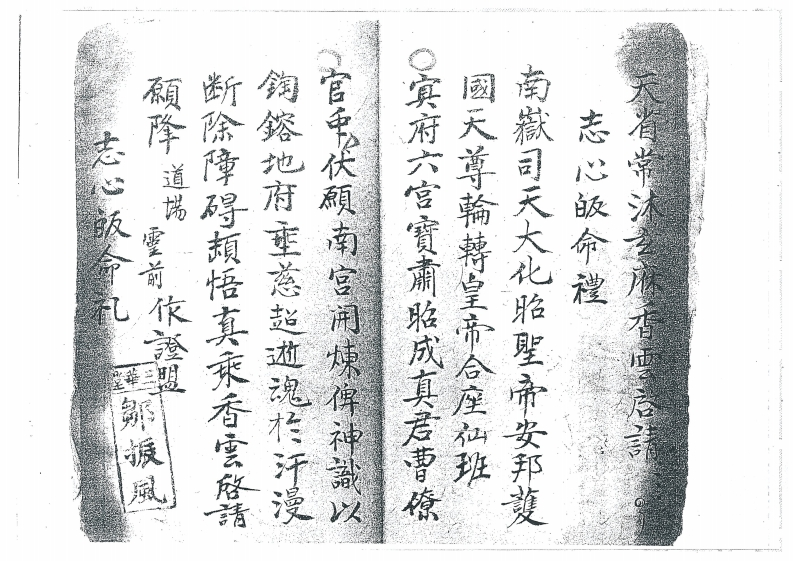 天省常沐玄庥香雲启請
志心皈命禮
南嶽司天大化昭聖帝安邦護
國天尊輪轉皇帝合座仙班
冥府六宫寶肅昭成真君曹僚
官重伏願南宫開煉俾神識以
鋾鎔地府垂慈超逝魂於汗漫
断除障碍頓悟真乘香雲啓請
願降道場靈前作證盟
志心皈命礼
三華堂
鄒振風